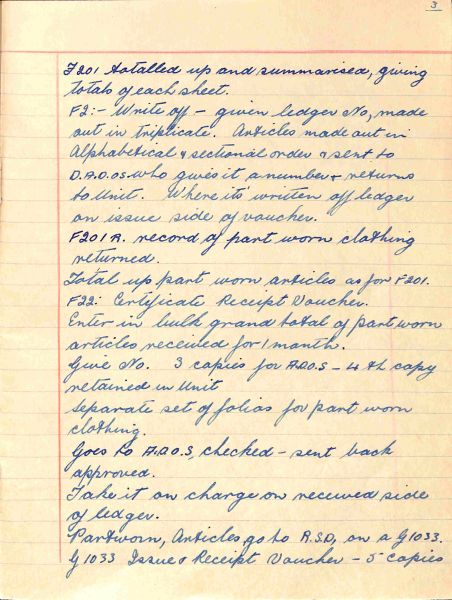 3
F201 totalled up and summarised, giving
totals of each sheet.
F2:- Write off - given ledger No, made
out in triplicate. Articles made out in
Alphabetical & sectional order & sent to
D.A.D.OS. who gives it a number & returns
to Unit. Where its' written off ledger
on issue side of voucher.
F201A. record of part worn clothing
returned.
Total up part worn articles as for F201.
F22: Certificate Receipt Voucher.
Enter in bulk grand total of part worn
articles received for 1 month.
Give No. 3 copies for A.D.O.S - 4th copy
retained in Unit
Separate set of folias for part worn
clothing.
Goes to A.D.O.S, checked - sent back
approved.
Take it on charge on received side
of ledger.
Partworn, Articles go to A.S.D, on a G1033.
G1033 Issue & Receipt Voucher - 5 copies